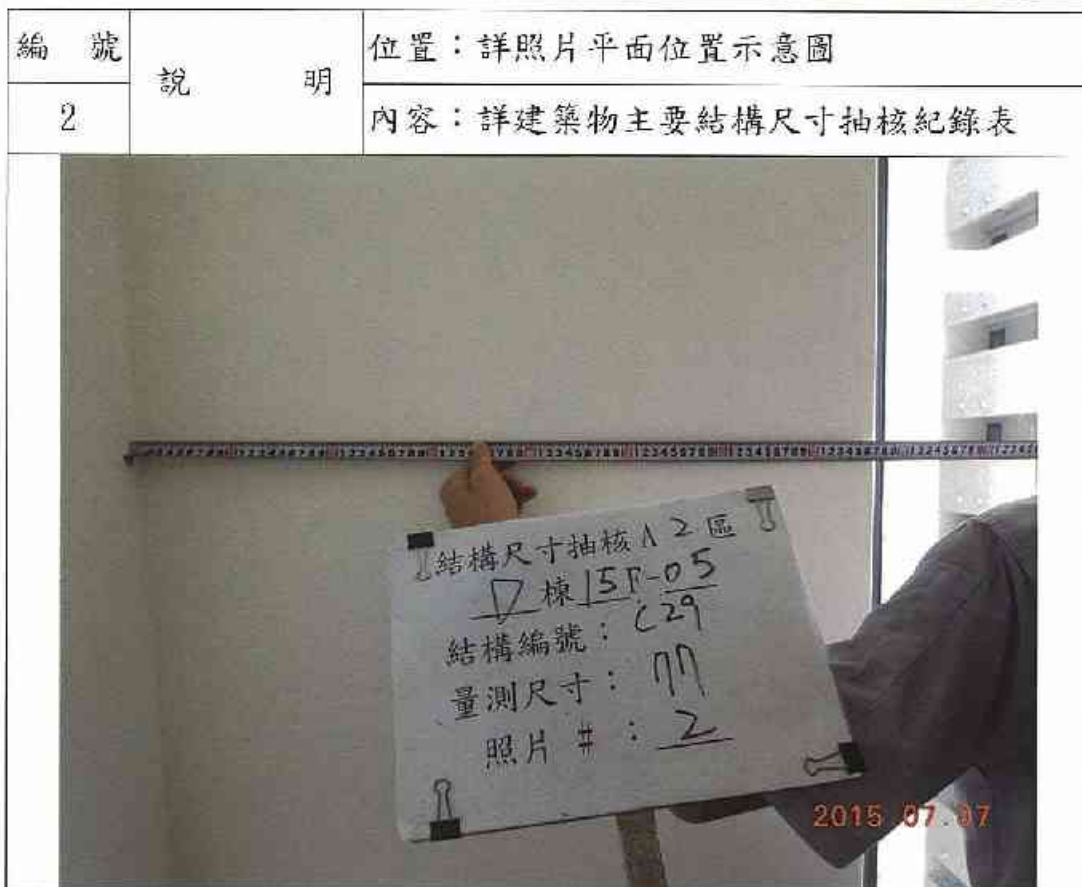 編號
說明
位置：詳照片平面位置示意圖
2
內容：詳建築物主要結構尺寸抽核紀錄表
結構尺寸抽核A2區
棟15F-05
結構編號：C29
量測尺寸：77
照片#：2
2015 07.07